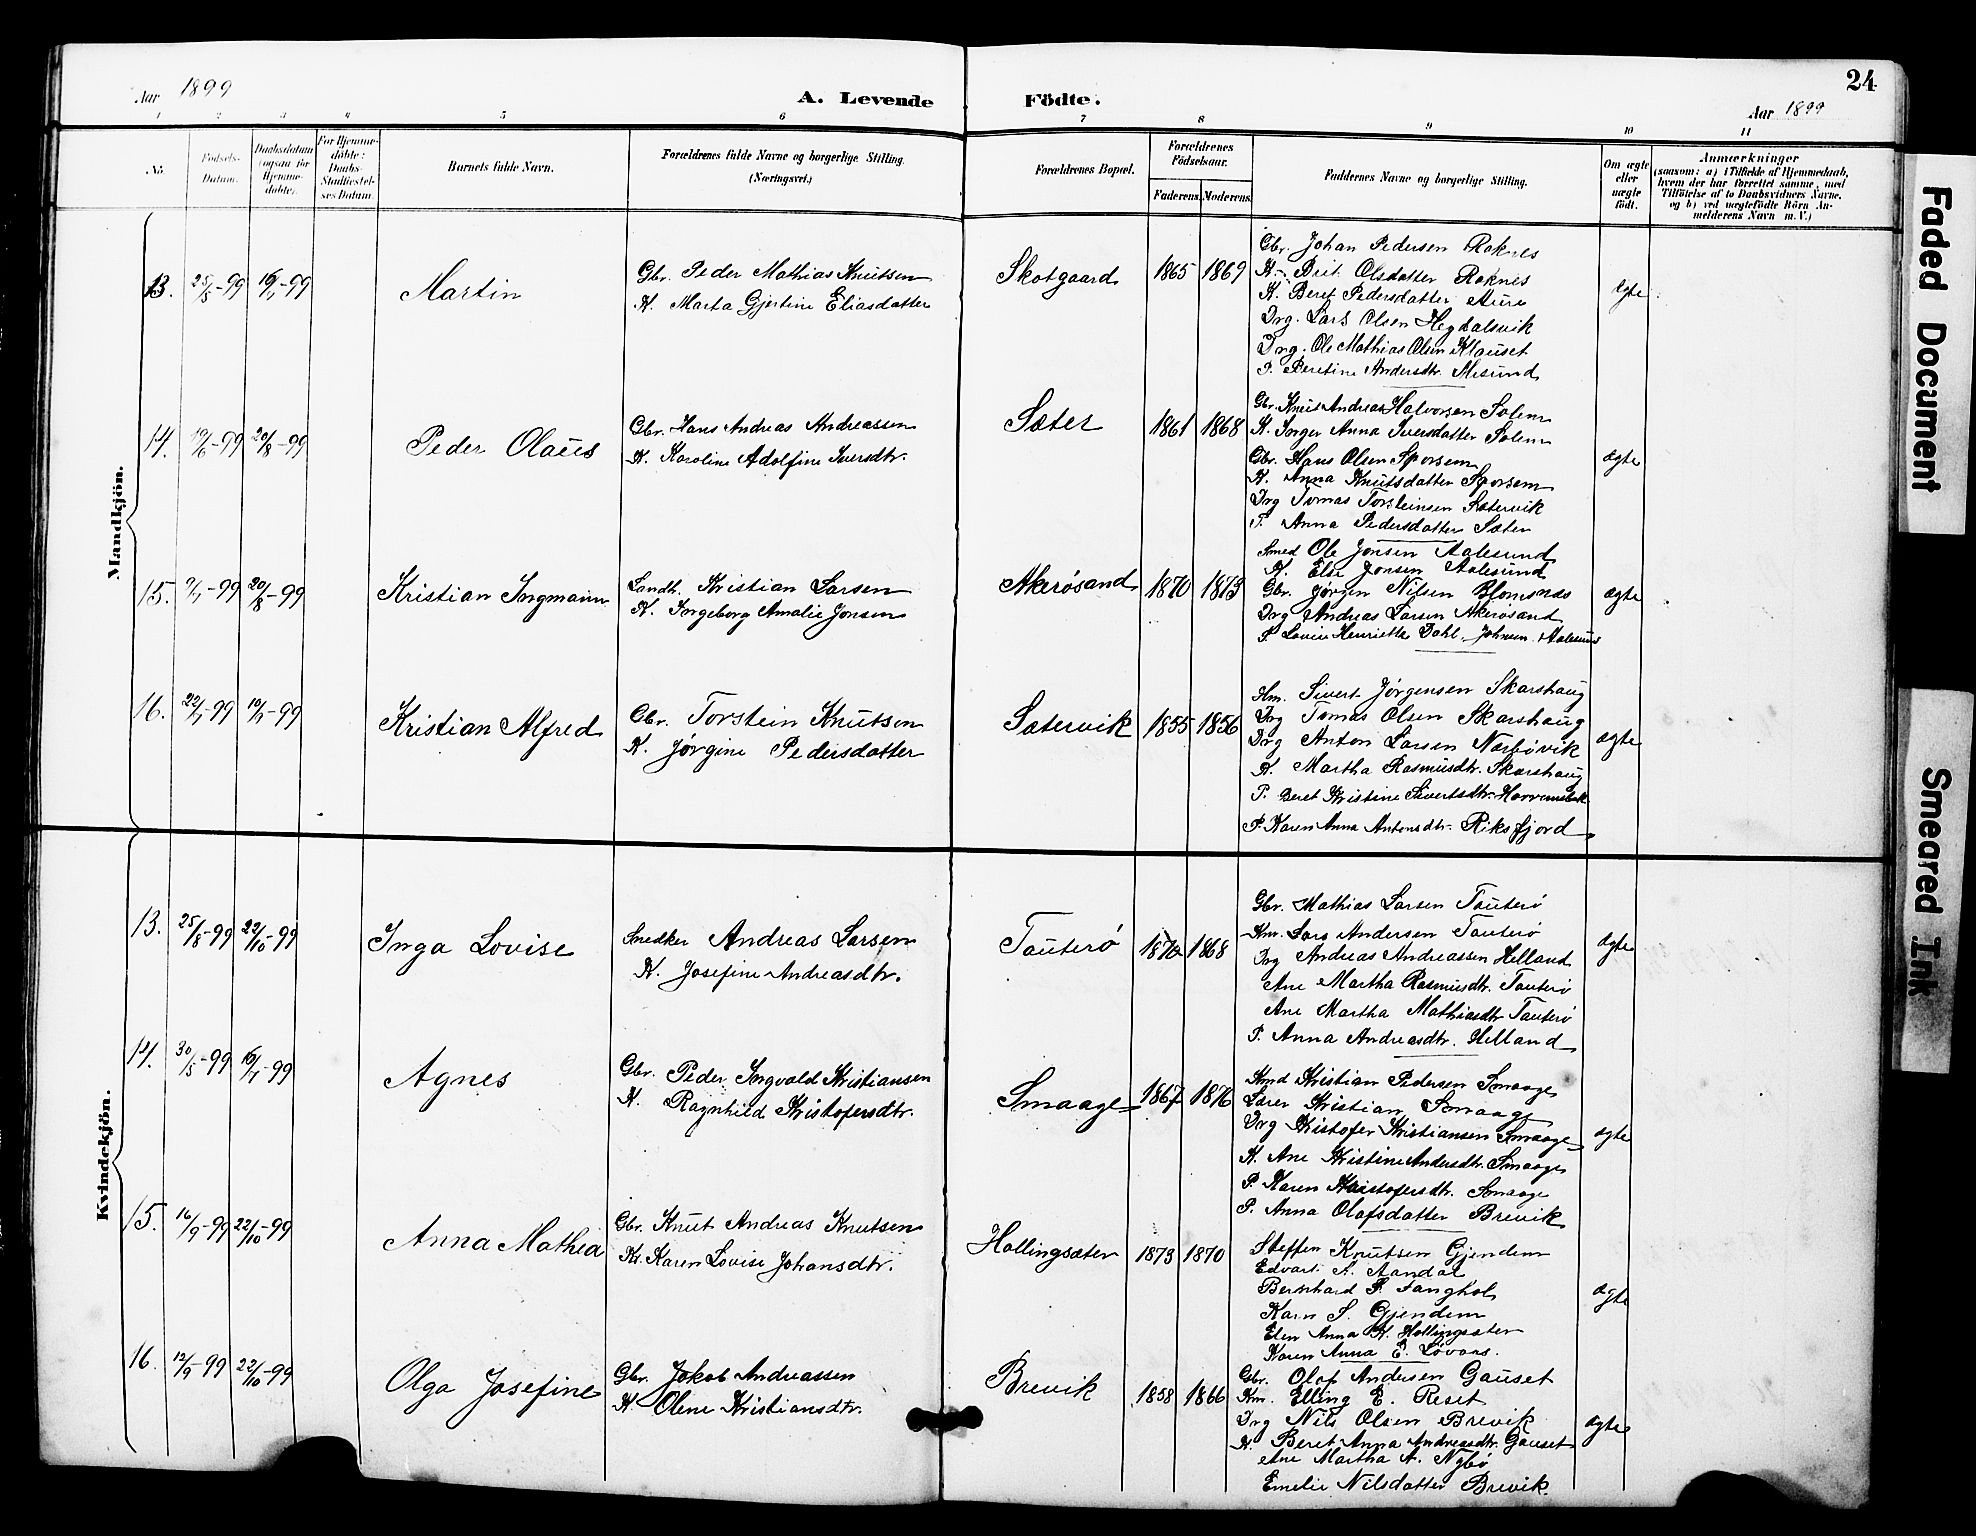 24
Aar 1899
A. Levende Födte.
Aar 1899
1 2 3 4 5 6 7 8 9 10 11
No.
Födsels-
Datum.
Daabsdatum
(ogsaa for
Hjemme-
döbte).
For Hjemme-
döbte:
Daabs-
Stadfæstel-
ses Datum.
Barnets fulde Navn.
Forældrenes fulde Navne og borgerlige Stilling.
(Næringsvei.)
Forældrenes Bopæl.
Forældrenes
Födselsaar.
Faderens. Moderens.
Faddernes Navne og borgerlige Stilling.
Om ægte
eller
uægte
födt.
Anmærkninger
(saasom: a) i Tilfælde af Hjemmedaab,
hvem der har forrettet samme, med
Tilföielse af to Daabsvidners Navne,
og b) ved uægtefödte Börn An-
melderens Navn m. V.)
Mandkjön.
13. 25/5-99 16/7-99 Martin
Gbr. Peder Mathias Knutsen
K. Marta Gjertine Eliasdatter
Skotgaard 1865 1869
Gbr. Johan Pedersen Roknes
K. Brit Olsdatter Roknes
K. Beret Pedersdatter Aure
Ing. Lars Olsen Hegdalsvik
Ing. Ole Mathias Olsen Klauset
P. Beretine Andersdtr. Misund
ægte
14. 19/6-99 20/8-99 Peder Olaus
Gbr. Hans Andreas Andreassen
K. Karoline Adolfine Iversdtr.
Sæter 1861 1868
Gbr. Knut Andreas Halvorsen Solem
K. Inger Anna Iversdatter Solem
Gbr. Hans Olsen Sporsem
K. Anna Knutsdatter Sporsem
Ing Tomas Torsteinsen Sætervik
P. Anna Pedersdatter Sæter
ægte
15. 9/7-99 20/8-99 Kristian Ingmann
Landh. Kristian Larsen
K. Ingeborg Amalie Jonsen
Akerøsand 1870 1873
Smed Ole Jonsen Aalesund
K. Else Jonsen Aalesund
Gbr. Jørgen Nilsen Blomsnæs
Ing Andreas Larsen Akerøsand
P. Lovise Henriette Dahl Johnsen Aalesund
ægte
16. 22/7-99 Kristian Alfred
Gbr. Torstein Knutsen
K. Jørgine Pedersdatter
Sætervik 1855 1856
Hm. Sivert Jørgensen Skarshaug
Ing Tomas Olsen Skarshaug
Ing Anton Larsen Nærbøvik
K. Martha Rasmusdtr. Skarshaug
P. Beret Kristine Sivertsdtr.
P. Karen Anna Antonsdtr. Riksfjord
ægte
Kvindekjön.
13. 25/8-99 22/10-99 Inga Lovise
Snedker Andreas Larsen
K. Josefine Andreasdtr.
Tauterø 1868
Gbr. Mathias Larsen Tauterø
Km. Lars Andersen Tauterø
Ing Andreas Andreassen Helland
Ane Martha Rasmusdtr. Tauterø
Ane Martha Mathiasdtr Tauterø
P. Anna Andreasdtr. Helland
ægte
14. 30/5-99 16/7-99 Agnes
Gbr. Peder Ingvald Kristiansen
K. Ragnhild Kristofersdtr.
Smaage 1867 1876
Kmd Kristian Pedersen Smaage
Lærer Kristian Smaage
Ing Kristofer Kristiansen Smaage
K. Ane Kristine Andersdtr. Smaage
P. Karen Kristofersdtr. Smaage
P. Anna Olafsdatter Brevik
ægte
15. 16/9-99 22/10-99 Anna Mathea
Gbr. Knut Andreas Knutsen
K. Karen Lovise Johansdtr.
Hollingsæter 1873 1870
Steffen Knutsen Gjendem
Edvart A. Aandal
Bernhard P. Tanghol
Karn S. Gjendem
Elen Anna K. Hollingsæter
Karen Anna E. Løvaas.
ægte
16. 12/9-99 22/10-99 Olga Josefine
Gbr. Jakob Andreassen
K. Olene Kristiansdtr.
Brevik 1858 1866
Gbr. Olaf Andersen Gauset
Km. Elling E. Reset
Ing Nils Olsen Brevik
K. Beret Anna Andreasdtr. Gauset
Ane Martha A. Nybø
Emelie Nilsdatter Brevik.
ægte
Faded Document
Smeared Ink